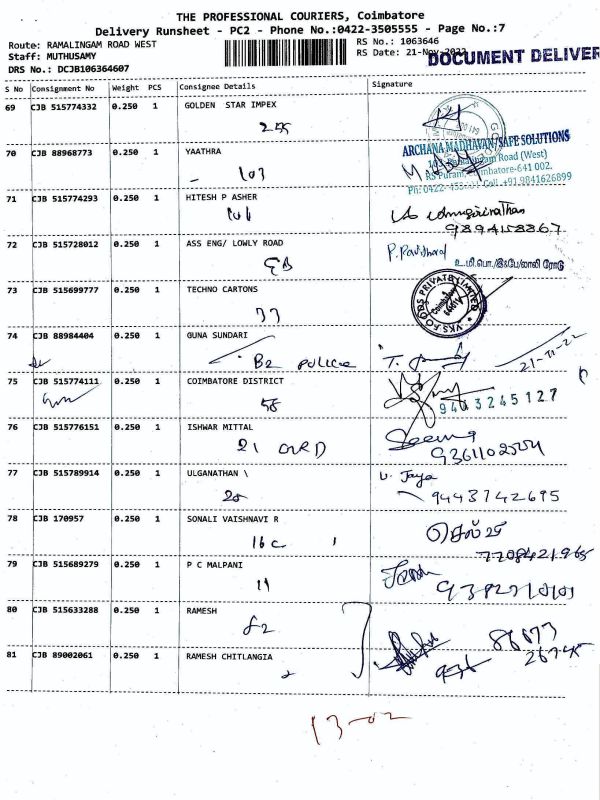 THE PROFESSIONAL COURIERS, Coimbatore
Delivery Runsheet - PC2 - Phone No.:0422-3505555 - Page No.:7
Route: RAMALINGAM ROAD WEST
RS No.: 1063646
Staff: MUTHUSAMY
RS Date: 21-Nov-2022
DOCUMENT DELIVER
DRS No.: DCJB106364607
S No Consignment No Weight PCS Consignee Details Signature
69 CJB 515774332 0.250 1 GOLDEN STAR IMPEX
255
ARCHANA MADHAVAN/SAFE SOLUTIONS
70 CJB 88968773 0.250 1 YAATHRA
Ramalingam Road (West)
RS Puram, Coimbatore-641 002.
103
Ph: 0422- Cell +91 9841626899
71 CJB 515774293 0.250 1 HITESH P ASHER
101
9894158867
72 CJB 515728012 0.250 1 ASS ENG/ LOWLY ROAD
EB
உ.மி.பொ./இ&பே/லாலி ரோடு
73 CJB 515699777 0.250 1 TECHNO CARTONS
77
VKS FOODS PRIVATE LIMITED
Coimbatore
74 CJB 88984404 0.250 1 GUNA SUNDARI
B2 police
21-11-22
75 CJB 515774111 0.250 1 COIMBATORE DISTRICT
58
9443245127
76 CJB 515776151 0.250 1 ISHWAR MITTAL
21
Seema
77 CJB 515789914 0.250 1 ULGANATHAN \
25
U. Jaya
9443742695
78 CJB 170957 0.250 1 SONALI VAISHNAVI R
16 C
செல்வி
7708421965
79 CJB 515689279 0.250 1 P C MALPANI
11
80 CJB 515633288 0.250 1 RAMESH
82
86673
26745
81 CJB 89002061 0.250 1 RAMESH CHITLANGIA
13-02